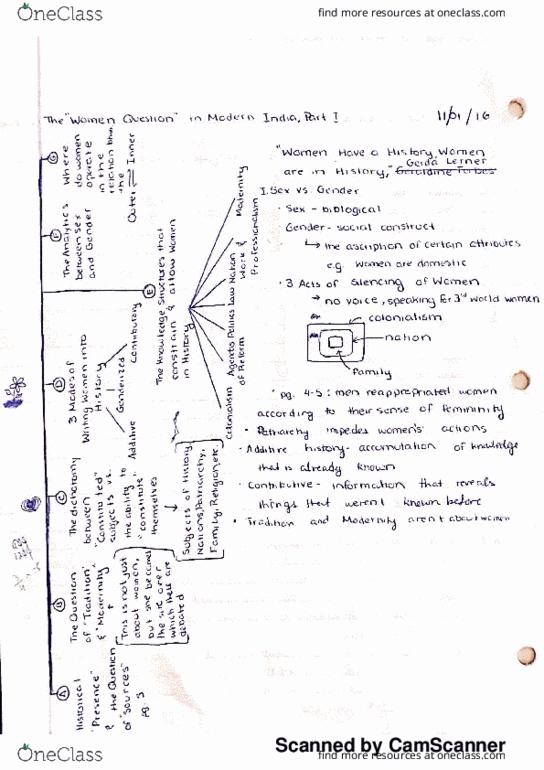 OneClass
find more resources at oneclass.com
The "Women Question" in Modern India, Part I
11/01/16
"Women Have a History, Women
are in History," Gerda Lerner
Geraldine Forbes
I. Sex vs. Gender
· Sex - biological
Gender - social construct
↳ the ascription of certain attributes
e.g. women are domestic
· 3 Acts of Silencing of Women
→ no voice, speaking for 3rd world women
colonialism
nation
family
· pg. 4-5: men reappropriated women
according to their sense of femininity
· Patriarchy impedes women's actions
· Additive history - accumulation of knowledge
that is already known
· Contributive - information that reveals
things that weren't known before
· Tradition and Modernity aren't about women
A
Historical
"Presence"
& the Question
of "Sources"
pg. 3
B
The Question
of "Tradition"
& "Modernity"
This is not just
about women,
but she becomes
the site over
which these are
debated
C
The dichotomy
between
"Constituted"
subjects vs.
the ability to
"constitute"
themselves
Subjects of History,
Nations, Patriarchy,
Family, Religion, etc.
D
3 Modes of
Writing Women into
History
Additive
Genderized
Contributory
E
The Knowledge Structures that
constrain & allow women
in History
Colonialism
Agents
of Reform
Politics
Law
Nation
Work &
Professionalism
Modernity
F
The Analytics
between Sex
and Gender
G
Where
do women
operate
in the
relation btwn
the
Outer Inner
Scanned by CamScanner
OneClass
find more resources at oneclass.com